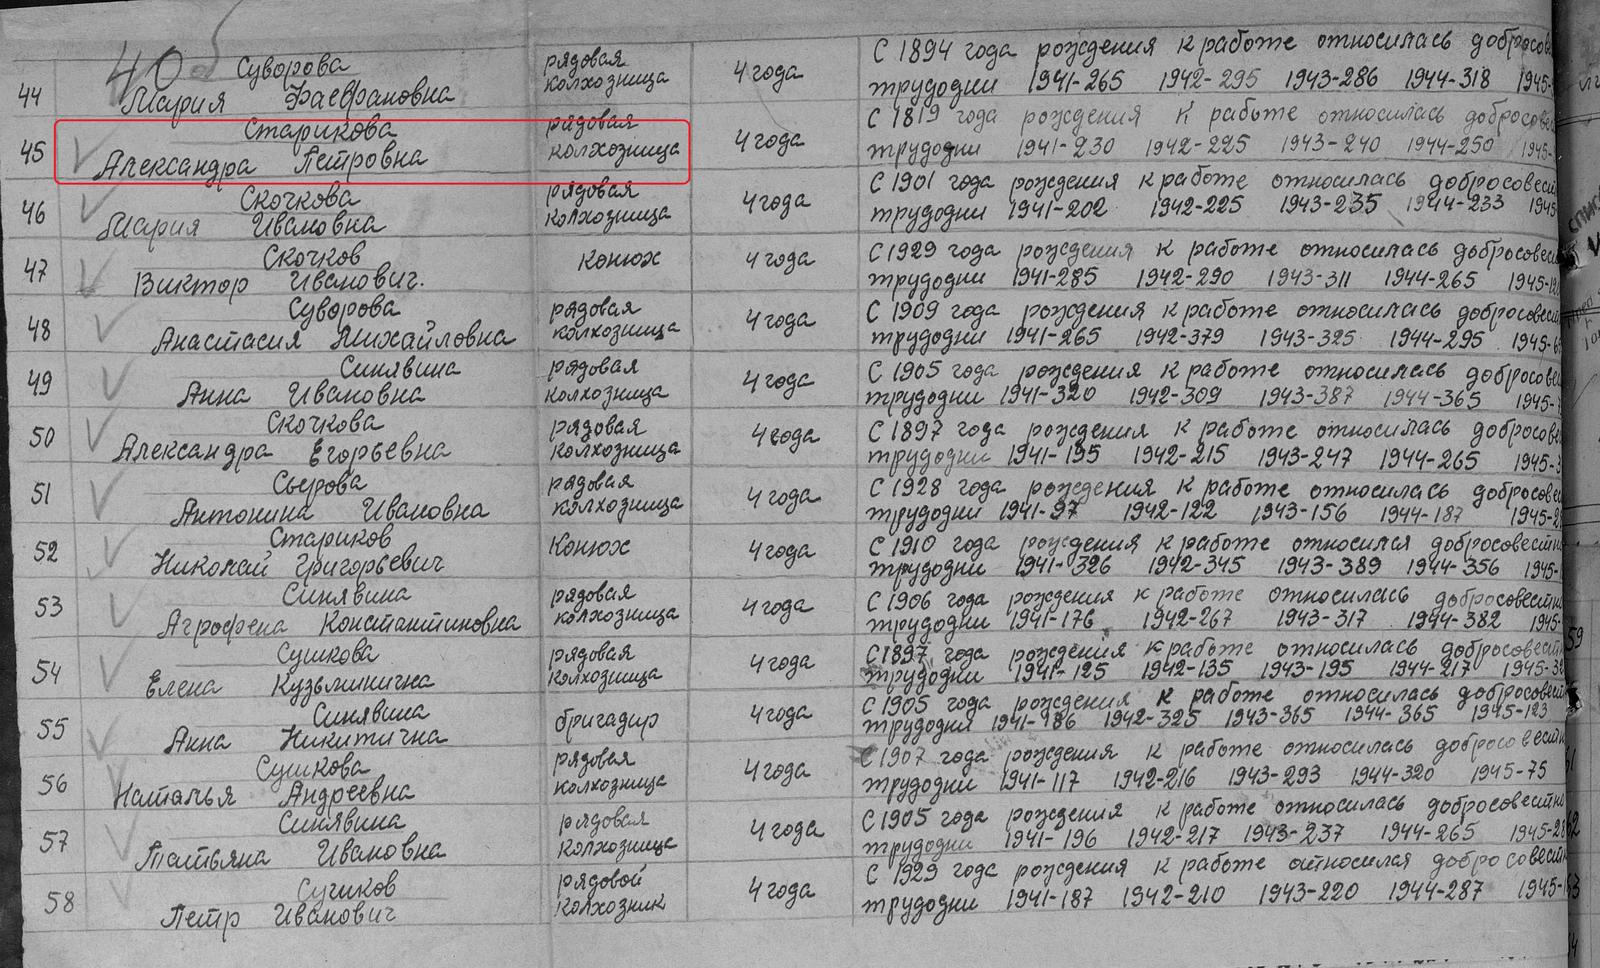 405
44 Суворова рядовая 4 года С 1894 года рождения к работе относилась добросов
Мария Фаефановна колхозница трудодни 1941-265 1942-295 1943-286 1944-318 1945-
45 Старикова рядовая 4 года С 1819 года рождения к работе относилась добросовес
Александра Петровна колхозница трудодни 1941-230 1942-225 1943-240 1944-250 1945-
46 Скочкова рядовая 4 года С 1901 года рождения к работе относилась добросовест
Мария Ивановна колхозница трудодни 1941-202 1942-225 1943-235 1944-233 1945-
47 Скочков конюх 4 года С 1929 года рождения к работе относилась добросове
Виктор Иванович. трудодни 1941-285 1942-290 1943-311 1944-265 1945-
48 Суворова рядовая 4 года С 1909 года рождения к работе относилась добросове
Анастасия Михайловна колхозница трудодни 1941-265 1942-379 1943-325 1944-295 1945-
49 Синявина рядовая 4 года С 1905 года рождения к работе относилась добросовес
Анна Ивановна колхозница трудодни 1941-320 1942-309 1943-387 1944-365 1945-
50 Скочкова рядовая 4 года С 1897 года рождения к работе относилась добросове
Александра Егорьевна колхозница трудодни 1941-195 1942-215 1943-247 1944-265 1945-
51 Сьерова рядовая 4 года С 1928 года рождения к работе относилась добросове
Антонина Ивановна колхозница трудодни 1941-97 1942-122 1943-156 1944-187 1945-
52 Стариков Конюх 4 года С 1910 года рождения к работе относился добросовестн
Николай Григорьевич трудодни 1941-326 1942-345 1943-389 1944-356 1945-
53 Синявина рядовая 4 года С 1906 года рождения к работе относилась добросовестн
Агрофена Константиновна колхозница трудодни 1941-176 1942-267 1943-317 1944-382 1945-
54 Сушкова рядовая 4 года С 1897 года рождения к работе относилась добросовестн
Елена Кузьминична колхозница трудодни 1941-125 1942-135 1943-195 1944-217 1945-32
55 Синявина бригадир 4 года С 1905 года рождения к работе относилась добросовест
Анна Никитична трудодни 1941-186 1942-325 1943-365 1944-365 1945-123
56 Сушкова рядовая 4 года С 1907 года рождения к работе относилась добросовестн
Наталья Андреевна колхозница трудодни 1941-117 1942-216 1943-293 1944-320 1945-75
57 Синявина рядовая 4 года С 1905 года рождения к работе относилась добросовестно
Татьяна Ивановна колхозница трудодни 1941-196 1942-217 1943-237 1944-265 1945-28
58 Сучков рядовой 4 года С 1929 года рождения к работе относился добросовестн
Петр Иванович колхозник трудодни 1941-187 1942-210 1943-220 1944-287 1945-
59